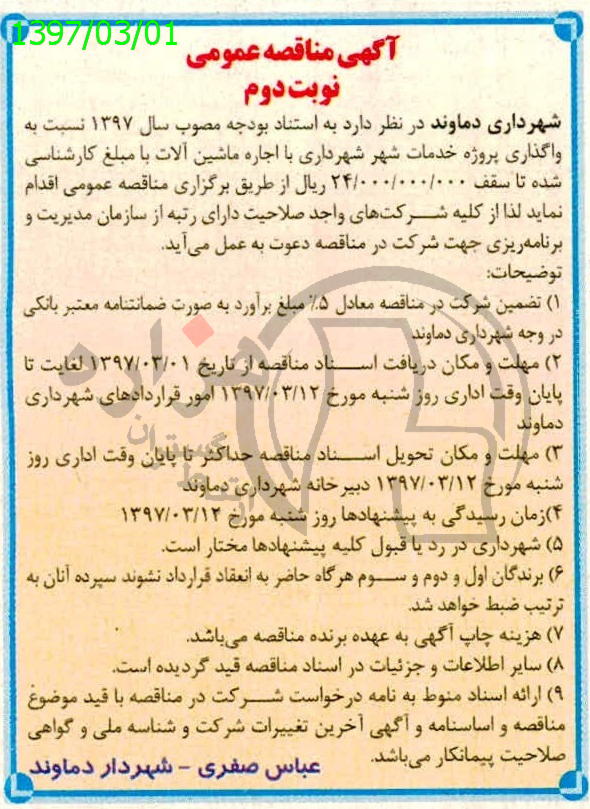 1397/03/01
آگهی مناقصه عمومی
نوبت دوم
شهرداری دماوند در نظر دارد به استناد بودجه مصوب سال ۱۳۹۷ نسبت به
واگذاری پروژه خدمات شهر شهرداری با اجاره ماشین آلات با مبلغ کارشناسی
شده تا سقف ۲۴/۰۰۰/۰۰۰/۰۰۰ ریال از طریق برگزاری مناقصه عمومی اقدام
نماید لذا از کلیه شرکت‌های واجد صلاحیت دارای رتبه از سازمان مدیریت و
برنامه‌ریزی جهت شرکت در مناقصه دعوت به عمل می‌آید.
توضیحات:
۱) تضمین شرکت در مناقصه معادل ۵٪ مبلغ برآورد به صورت ضمانتنامه معتبر بانکی
در وجه شهرداری دماوند
۲) مهلت و مکان دریافت اسناد مناقصه از تاریخ ۱۳۹۷/۰۳/۰۱ لغایت تا
پایان وقت اداری روز شنبه مورخ ۱۳۹۷/۰۳/۱۲ امور قراردادهای شهرداری
دماوند
۳) مهلت و مکان تحویل اسناد مناقصه حداکثر تا پایان وقت اداری روز
شنبه مورخ ۱۳۹۷/۰۳/۱۲ دبیرخانه شهرداری دماوند
۴)زمان رسیدگی به پیشنهادها روز شنبه مورخ ۱۳۹۷/۰۳/۱۲
۵) شهرداری در رد یا قبول کلیه پیشنهادها مختار است.
۶) برندگان اول و دوم و سوم هرگاه حاضر به انعقاد قرارداد نشوند سپرده آنان به
ترتیب ضبط خواهد شد.
۷) هزینه چاپ آگهی به عهده برنده مناقصه می‌باشد.
۸) سایر اطلاعات و جزئیات در اسناد مناقصه قید گردیده است.
۹) ارائه اسناد منوط به نامه درخواست شرکت در مناقصه با قید موضوع
مناقصه و اساسنامه و آگهی آخرین تغییرات شرکت و شناسه ملی و گواهی
صلاحیت پیمانکار می‌باشد.
عباس صفری - شهردار دماوند